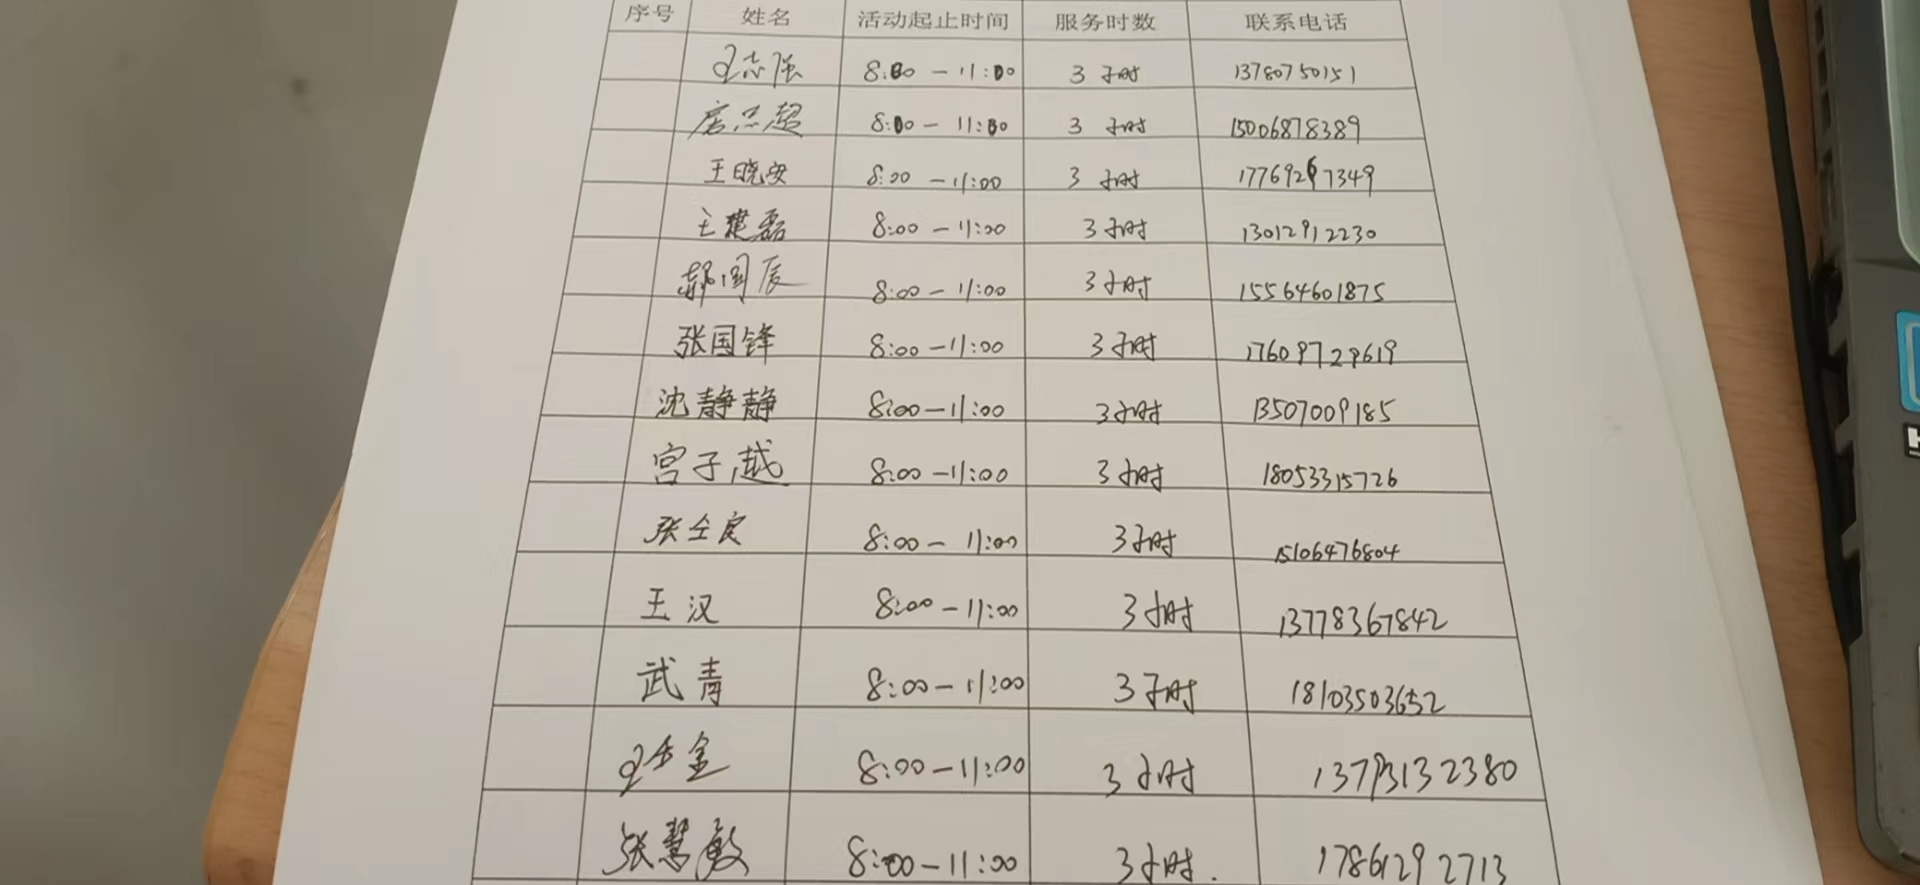 序号 姓名 活动起止时间 服务时数 联系电话
王志强 8:00-11:00 3小时 13780750151
8:00-11:00 3小时 15006878389
王晓安 8:00-11:00 3小时 17769267349
王建磊 8:00-11:00 3小时 13012912230
郝国辰 8:00-11:00 3小时 15564601875
张国锋 8:00-11:00 3小时 17609729619
沈静静 8:00-11:00 3小时 13507009185
宫子越 8:00-11:00 3小时 18053315726
张全良 8:00-11:00 3小时 15106476804
王汉 8:00-11:00 3小时 13778367842
武青 8:00-11:00 3小时 18103503652
8:00-11:00 3小时 13793132380
张慧敏 8:00-11:00 3小时. 17861292713